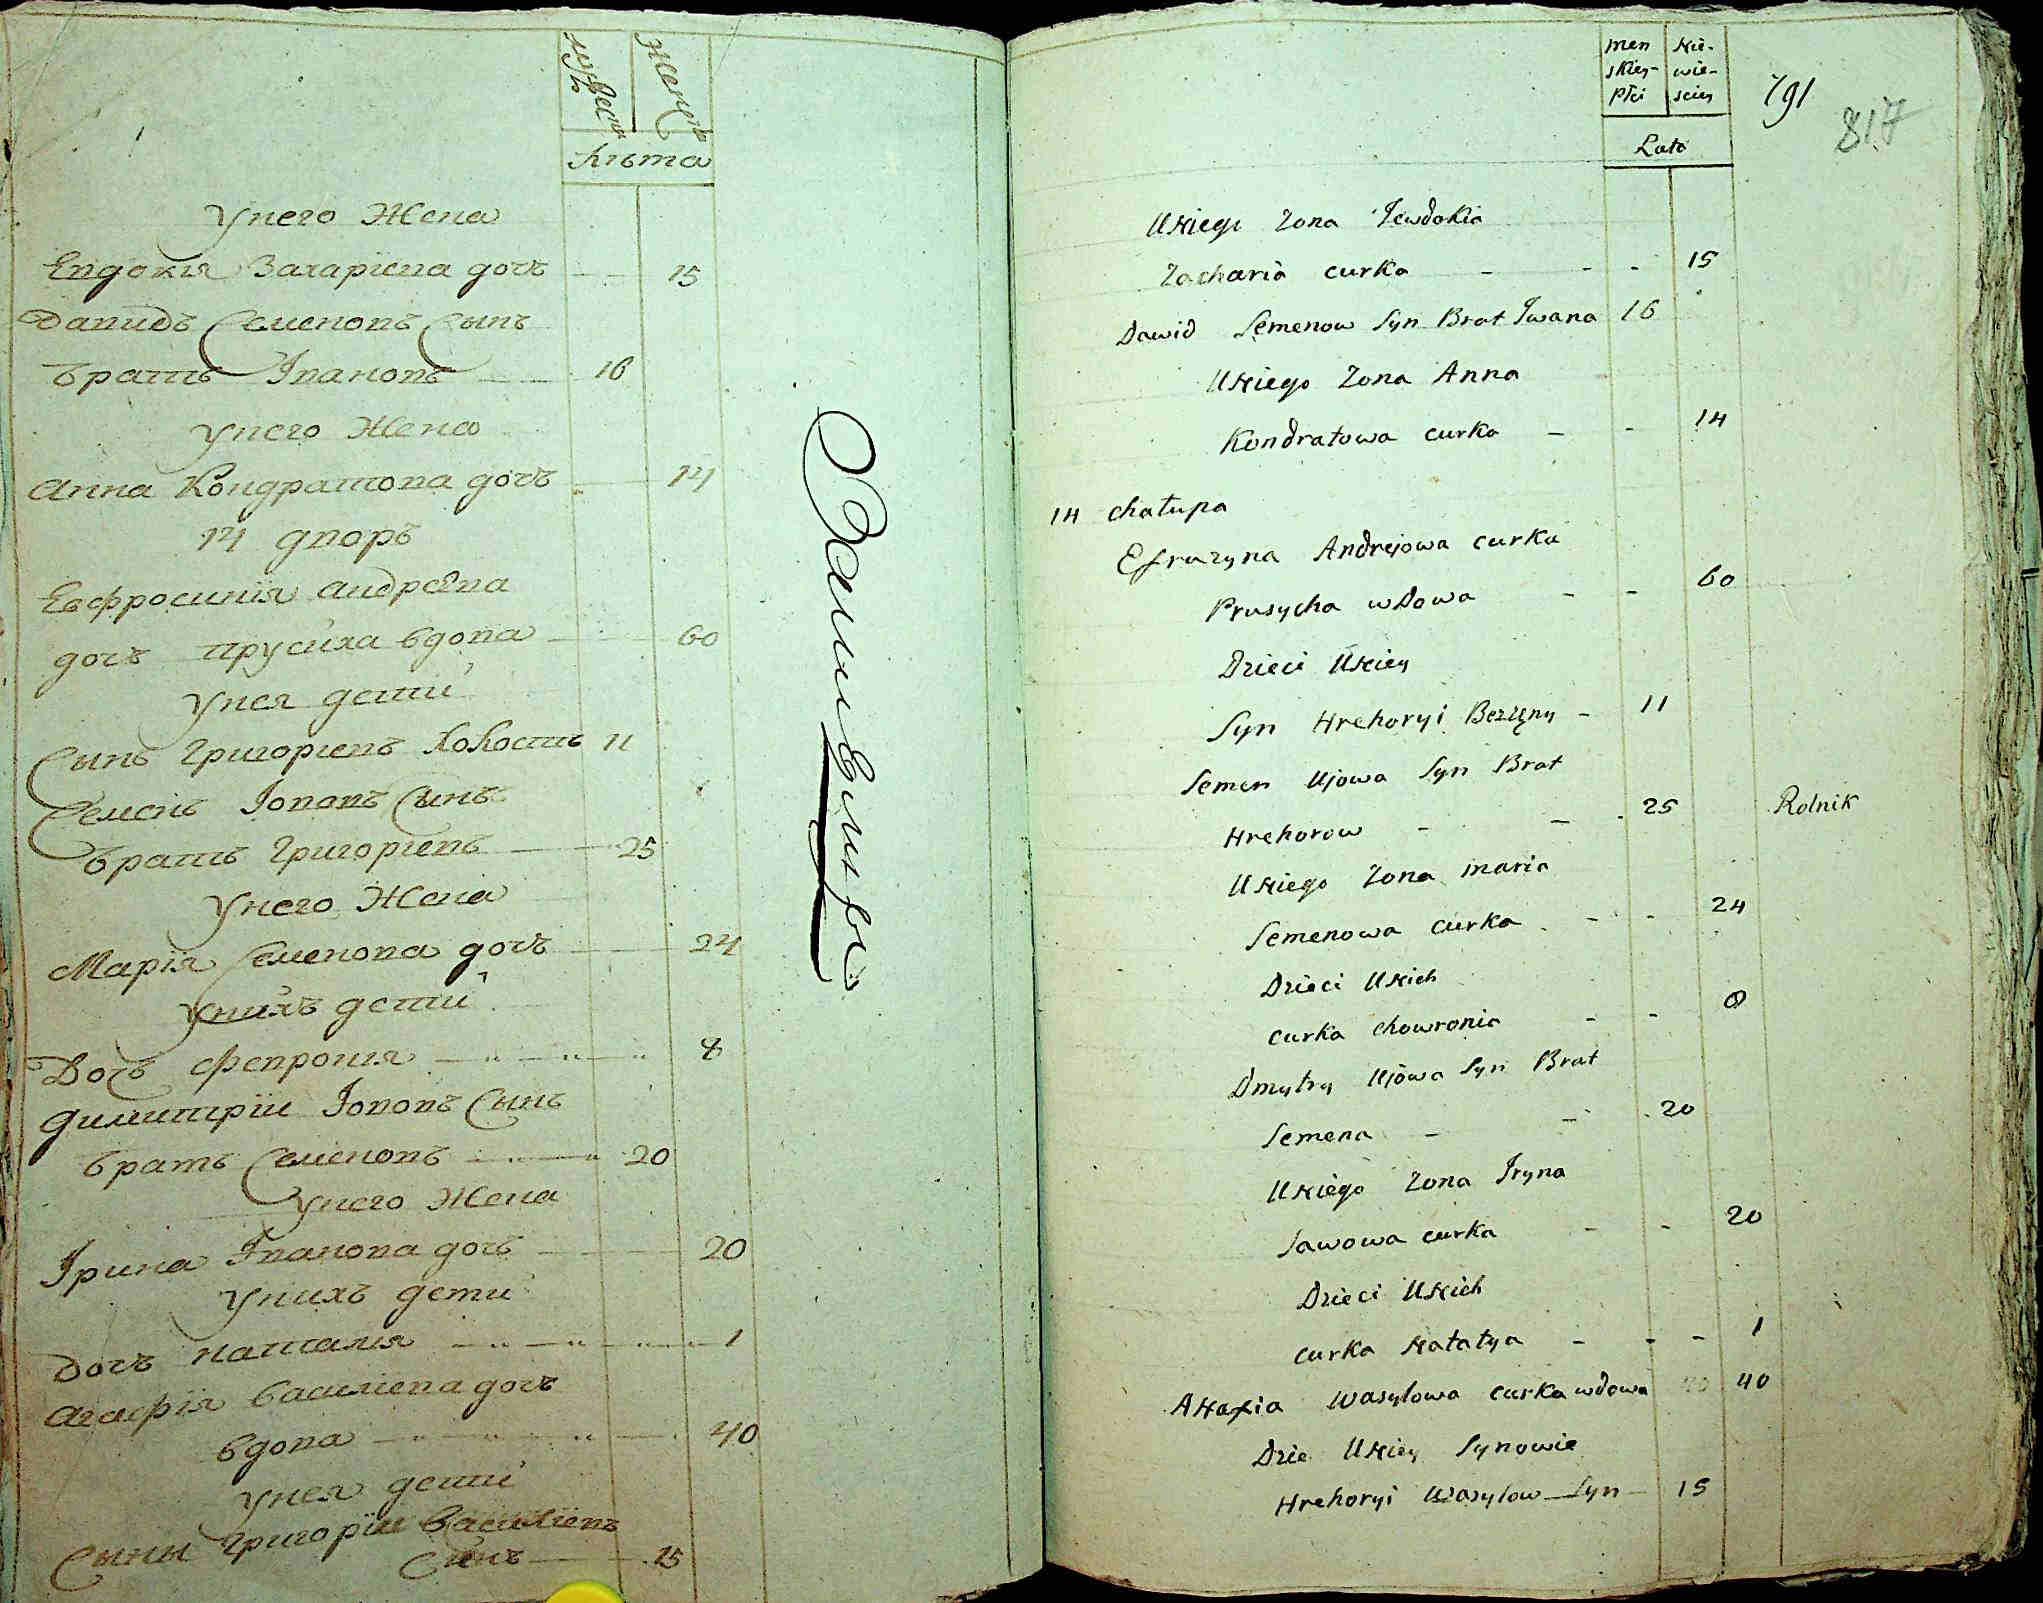 мужеска
женска
лѣта
У него жена
Евдокия Захариева дочь 15
Давидъ Семеновъ сынъ
братъ Івановъ 16
У него жена
Анна Кондратова дочь 14
14 дворъ
Евфросинія Андреева
дочь Прусиха вдова 60
У нея дети
Сынъ Григориевъ холостъ 11
Семенъ Іововъ сынъ
братъ Григориевъ 25
У него жена
Марія Семенова дочь 24
У нихъ дети
Дочь Феврония 8
Димитрій Іововъ сынъ
братъ Семеновъ 20
У него жена
Ірина Іванова дочь 20
У нихъ дети
Дочь Наталя 1
Агафія Василиева дочь
вдова 40
У нея дети
Сыны Григорій Василіевъ
сынъ 15
men
skiey
płci
Nie-
wie-
sciey
Lato
791
817
U Niego Zona Jewdokia
Zacharia curka - - - 15
Dawid Semenow Syn Brat Jwana 16
U Niego Zona Anna
Kondratowa curka - - 14
14 chałupa
Efrazyna Andrejowa curka
Prusycha wdowa - - 60
Dzieci U Niey
Syn Hrehoryi Bezżęny - 11
Semen Ujowa Syn Brat
Hrehorow - - 25 Rolnik
U Niego Zona Maria
Semenowa curka - - 24
Dzieci U Nich
curka Chowronia - - 8
Dmytry Ujowa Syn Brat
Semena - - 20
U Niego Zona Jryna
Sawowa curka - - 20
Dzieci U Nich
curka Natalya - - - 1
AHafia Wasylowa curka wdowa 40
Dzie U Niey Synowie
Hrehoryi Wasylow Syn 15